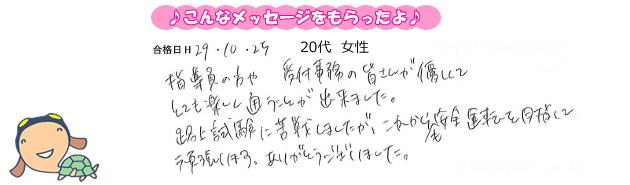 ♪こんなメッセージをもらったよ♪
合格日 H 29・10・25 20代 女性
指導員の方や 受付事務の皆さんが優しくて
とても楽しく通うことが出来ました。
路上試験に苦戦しましたが、これからも安全運転を目指して
頑張ります。ありがとうございました。